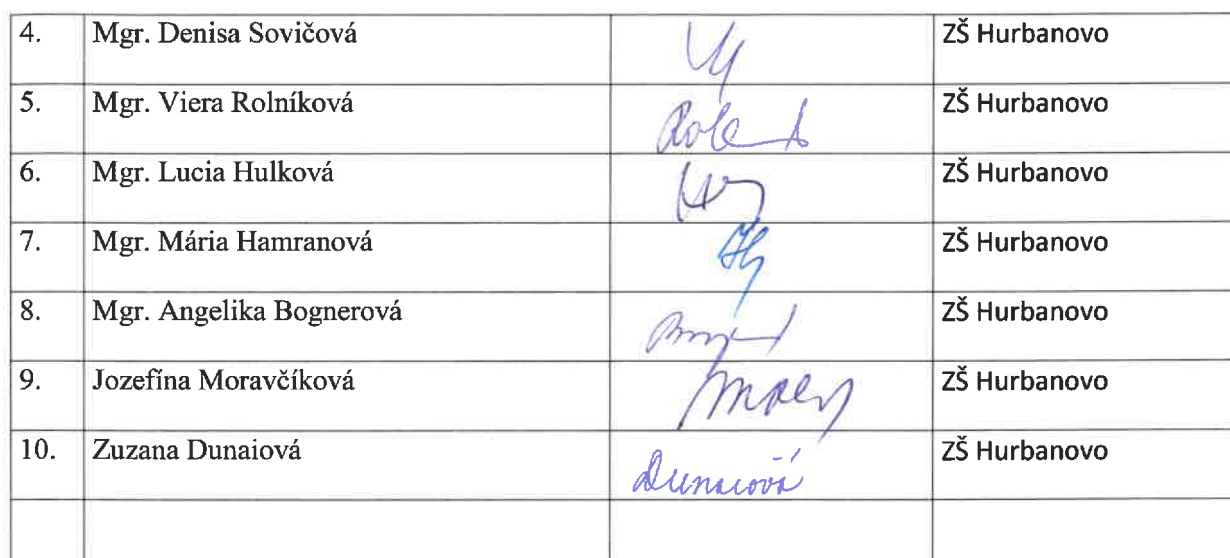 4. Mgr. Denisa Sovičová ZŠ Hurbanovo
5. Mgr. Viera Rolníková ZŠ Hurbanovo
6. Mgr. Lucia Hulková ZŠ Hurbanovo
7. Mgr. Mária Hamranová ZŠ Hurbanovo
8. Mgr. Angelika Bognerová ZŠ Hurbanovo
9. Jozefína Moravčíková ZŠ Hurbanovo
10. Zuzana Dunaiová Dunaiová ZŠ Hurbanovo